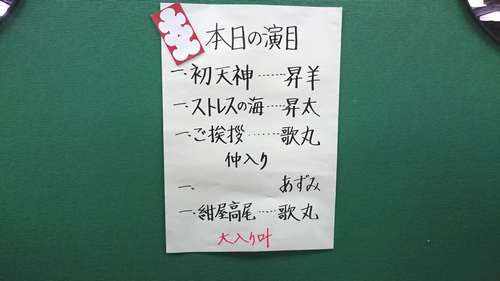 本日の演目
一、初天神……昇羊
一、ストレスの海…昇太
一、ご挨拶……歌丸
仲入り
一、 あずみ
一、紺屋高尾…歌丸
大入り叶